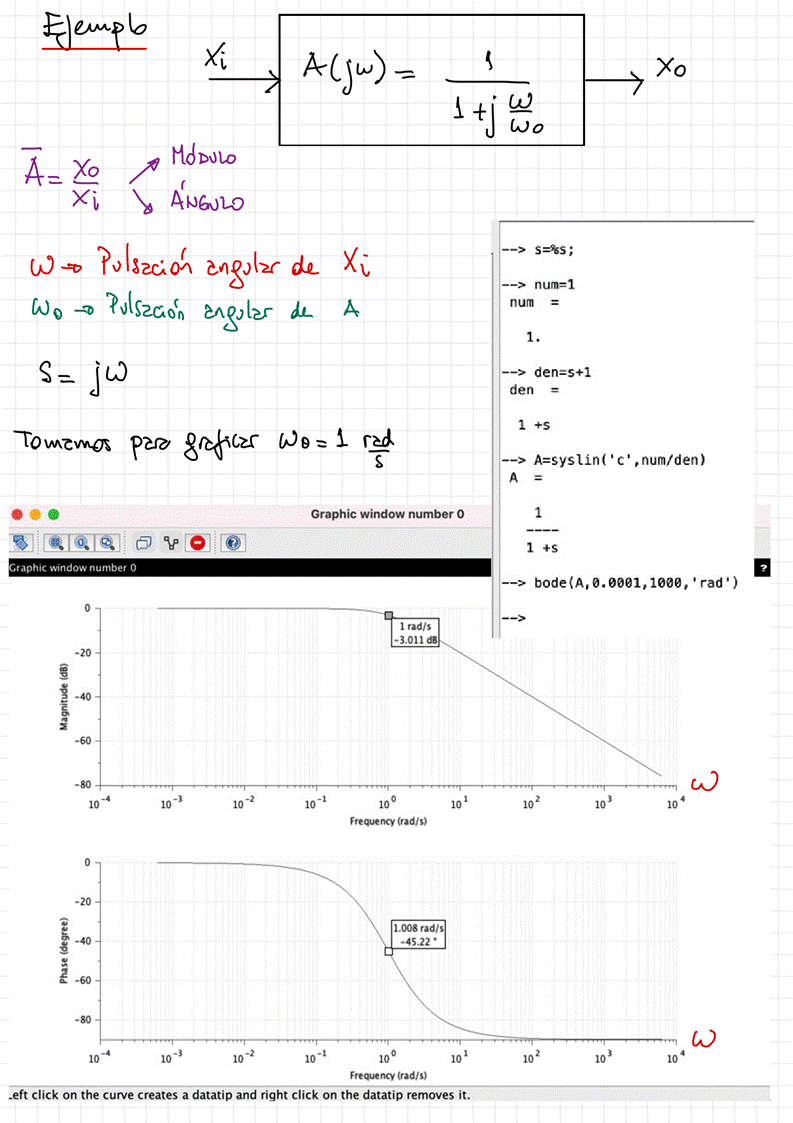 Ejemplo
Xi
A(jω) = 1 / (1 + j ω/ω0)
Xo
A = Xo / Xi
MÓDULO
ÁNGULO
ω → Pulsación angular de Xi
ω0 → Pulsación angular de A
S = jω
Tomamos para graficar ω0 = 1 rad/s
--> s=%s;
--> num=1
num =
1.
--> den=s+1
den =
1 +s
--> A=syslin('c',num/den)
A =
1
----
1 +s
--> bode(A,0.0001,1000,'rad')
-->
Graphic window number 0
Graphic window number 0
?
0
-20
-40
-60
-80
Magnitude (dB)
1 rad/s
-3.011 dB
10^-4 10^-3 10^-2 10^-1 10^0 10^1 10^2 10^3 10^4
ω
Frequency (rad/s)
0
-20
-40
-60
-80
Phase (degree)
1.008 rad/s
-45.22 °
10^-4 10^-3 10^-2 10^-1 10^0 10^1 10^2 10^3 10^4
ω
Frequency (rad/s)
Left click on the curve creates a datatip and right click on the datatip removes it.